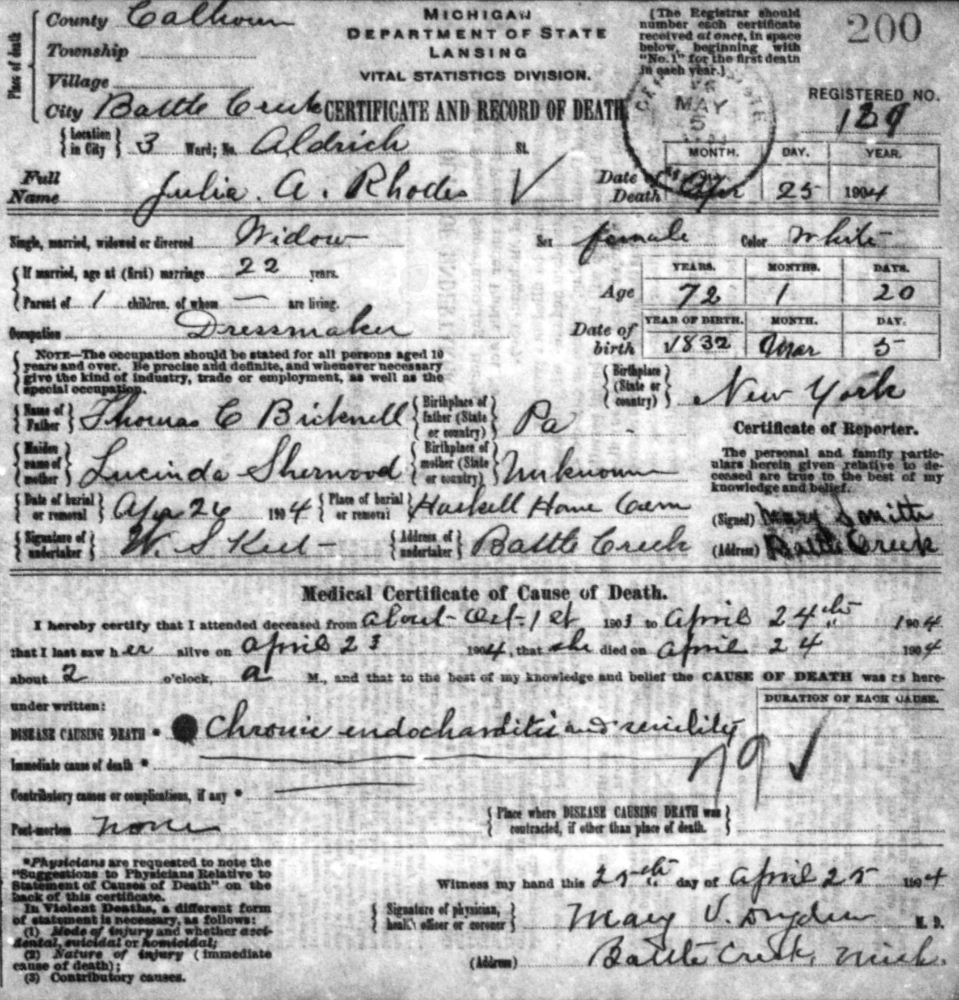 Place of death
County Calhoun
Township
Village
City Battle Creek
MICHIGAN
DEPARTMENT OF STATE
LANSING
VITAL STATISTICS DIVISION.
CERTIFICATE AND RECORD OF DEATH
(The Registrar should
number each certificate
received at once, in space
below, beginning with
"No. 1" for the first death
in each year.)
200
MAY
5
REGISTERED NO.
129
Location in City 3 Ward; No. Aldrich St.
Full Name Julia A. Rhodes
Date of Death
MONTH. DAY. YEAR.
Apr 25 1904
Single, married, widowed or divorced Widow
Sex female Color White
If married, age at (first) marriage 22 years.
Parent of 1 children, of whom — are living.
Age
YEARS. MONTHS. DAYS.
72 1 20
Occupation Dressmaker
Date of birth
YEAR OF BIRTH. MONTH. DAY.
1832 Mar 5
NOTE—The occupation should be stated for all persons aged 10
years and over. Be precise and definite, and whenever necessary
give the kind of industry, trade or employment, as well as the
special occupation.
Birthplace (State or country) New York
Name of Father Thomas C Bicknell Birthplace of father (State or country) Pa
Maiden name of mother Lucinda Sherwood Birthplace of mother (State or country) Unknown
Certificate of Reporter.
The personal and family partic-
ulars herein given relative to de-
ceased are true to the best of my
knowledge and belief.
(Signed) Mary Smith
(Address) Battle Creek
Date of burial or removal Apr 26 1904 Place of burial or removal Haskell Home Cem
Signature of undertaker W. S Keet Address of undertaker Battle Creek
Medical Certificate of Cause of Death.
I hereby certify that I attended deceased from about Oct 1st 1903 to April 24th 1904
that I last saw her alive on April 23 1904, that she died on April 24 1904
about 2 o'clock, a M., and that to the best of my knowledge and belief the CAUSE OF DEATH was as here-
under written:
DURATION OF EACH CAUSE.
DISEASE CAUSING DEATH * Chronic endocharditis and senility
79
Immediate cause of death *
Contributory causes or complications, if any *
Post-mortem none
Place where DISEASE CAUSING DEATH was
contracted, if other than place of death.
*Physicians are requested to note the
"Suggestions to Physicians Relative to
Statement of Causes of Death" on the
back of this certificate.
In Violent Deaths, a different form
of statement is necessary, as follows:
(1) Mode of injury and whether acci-
dental, suicidal or homicidal;
(2) Nature of injury (immediate
cause of death);
(3) Contributory causes.
Witness my hand this 25th day of April 25 1904
Signature of physician, health officer or coroner Mary V. Dryden M. D.
(Address) Battle Creek, Mich.